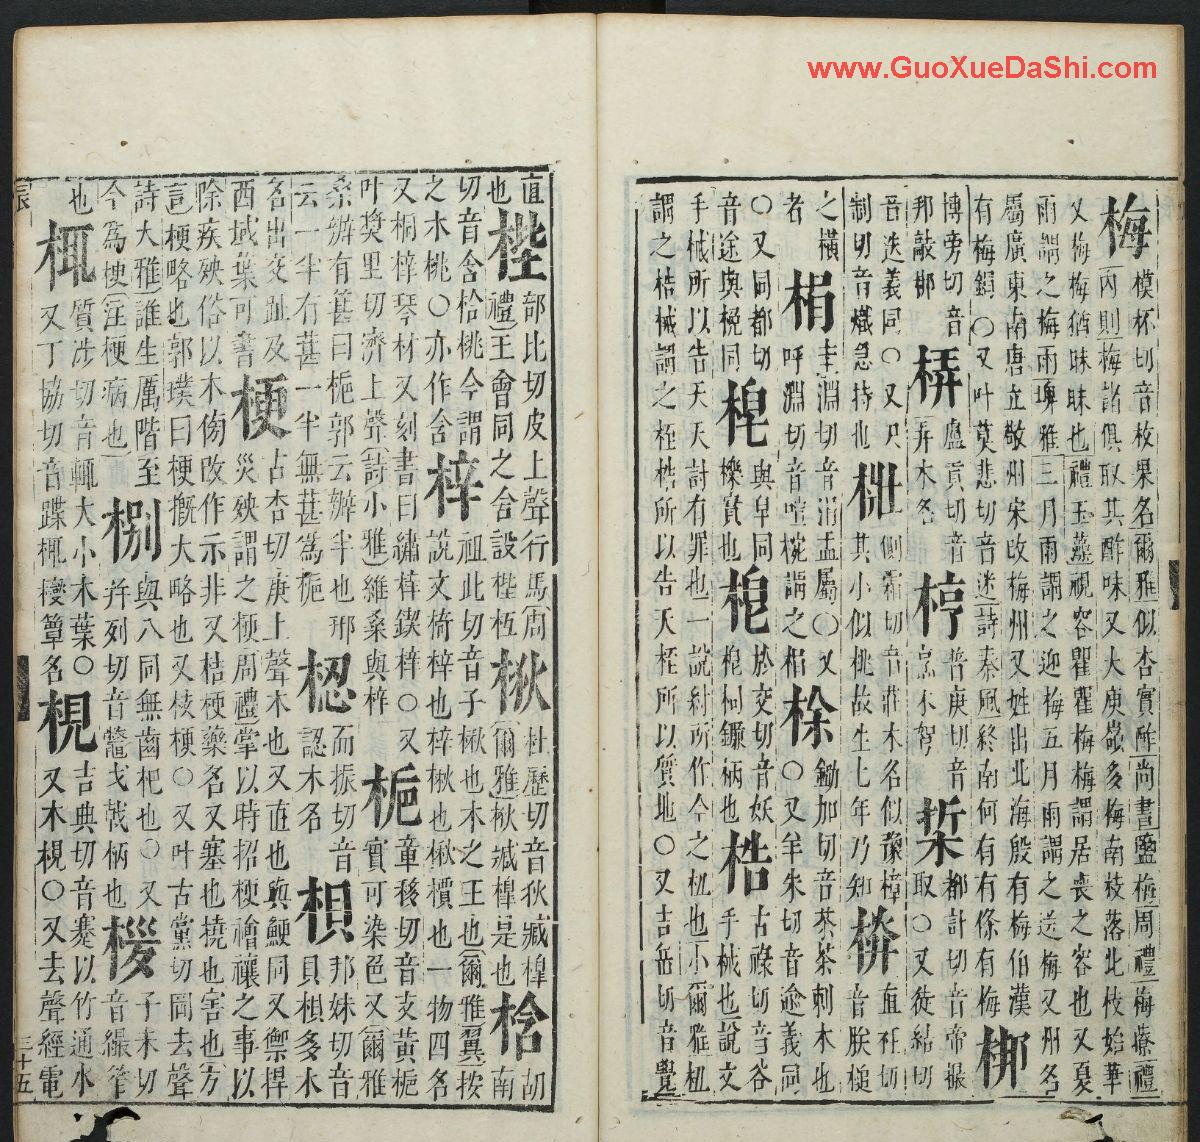 www.GuoXueDaShi.com
梅模杯切音枚果名爾雅似杏實酢尚書鹽梅周禮梅療禮
內則梅諸俱取其酢味又大庾嶺多梅南枝落北枝始華
又梅梅猶昧昧也禮玉藻視容瞿瞿梅梅謂居喪之容也又夏
雨謂之梅雨埤雅三月雨謂之迎梅五月雨謂之送梅又州名
屬廣東南唐立敬州宋改梅州又姓出北海殷有梅伯漢
有梅鋗○又叶莫悲切音迷詩秦風終南何有有條有梅梆
博旁切音邦敲梆
盧貢切音弄木名
普庚切音烹木弩
都計切音帝撮取○又徒結切
音迭義同○又尺制切音熾急持也
側霜切音莊木名似豫樟其小似桃故生七年乃知
直祍切音朕槌之橫者
圭淵切音涓盂屬○又呼淵切音喧椀謂之梋
梌鋤加切音茶茶刺木也○又羊朱切音逾義同
○又同都切音途與梲同
與皁同櫟實也
於交切音妖枹柯鐮柄也
梏古祿切音谷手械也說文
手械所以告天天討有罪也一說紂所作今之杻也小爾雅杻
謂之梏械謂之桎梏所以告天桎所以質地○又吉岳切音覺
直也
梐部比切皮上聲行馬周禮王會同之舍設梐枑
楸杜歷切音狄臧槔爾雅楸臧槔是也
梒胡南切音含梒桃今謂之木桃○亦作含
梓祖此切音子楸也木之王也爾雅翼按說文椅梓也梓楸也楸檟也一物四名
又桐梓琴材又刻書曰繡梓鍥梓○又叶奬里切濟上聲詩小雅維桑與梓
梔章移切音支黃梔實可染色又爾雅桑辦有葚曰梔郭云辦半也邢云一半有葚一半無葚爲梔
而振切音認木名
梖邦妹切音貝梖多木名出交趾及西域葉可書
梗古杏切庚上聲木也又直也與鯁同又禦捍災殃謂之梗周禮掌以時招梗禬禳之事以
除疾殃俗以木傍改作示非又桔梗藥名又塞也撓也害也方
言梗略也郭璞曰梗概大略也又枝梗○又叶古黨切岡去聲
詩大雅誰生厲階至今爲梗注梗病也
捌幷列切音鼈戈㦸柄也與八同無齒杷也○又
子未切音繓笮也
梎質涉切音輒大小木葉○又丁協切音蹀梎㰐簟名
梘吉典切音蹇以竹通水又木梘○又去聲經電
辰
三十五